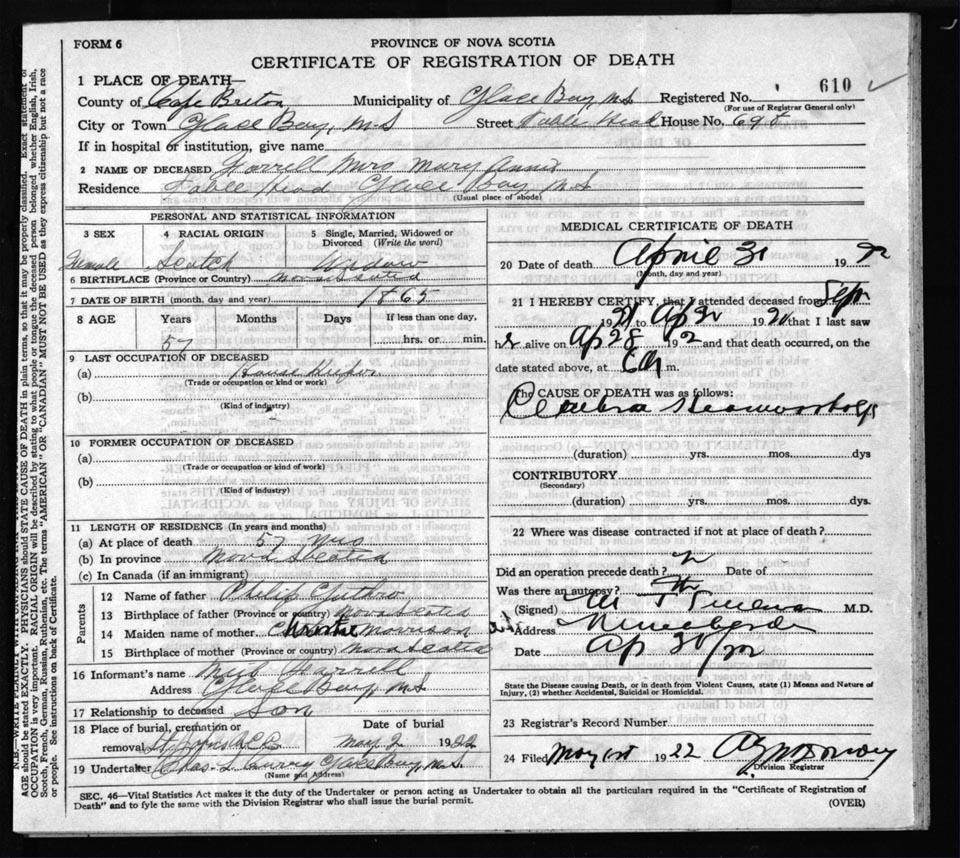 FORM 6
PROVINCE OF NOVA SCOTIA
CERTIFICATE OF REGISTRATION OF DEATH
610
1 PLACE OF DEATH—
County of Cape Breton Municipality of Glace Bay, N.S. Registered No.
(For use of Registrar General only)
City or Town Glace Bay, N.S. Street Table Head House No. 698
If in hospital or institution, give name
2 NAME OF DECEASED Farrell Mrs Mary Annie
Residence Table Head Glace Bay N.S.
(Usual place of abode)
PERSONAL AND STATISTICAL INFORMATION
3 SEX 4 RACIAL ORIGIN 5 Single, Married, Widowed or Divorced (Write the word)
Female Scotch Widow
6 BIRTHPLACE (Province or Country) Nova Scotia
7 DATE OF BIRTH (month, day and year) 1865
8 AGE Years Months Days If less than one day,
57 hrs. or min.
9 LAST OCCUPATION OF DECEASED
(a) House Keeper
(Trade or occupation or kind of work)
(b)
(Kind of industry)
10 FORMER OCCUPATION OF DECEASED
(a)
(Trade or occupation or kind of work)
(b)
(Kind of industry)
11 LENGTH OF RESIDENCE (In years and months)
(a) At place of death 57 yrs
(b) In province Nova Scotia
(c) In Canada (if an immigrant)
Parents
12 Name of father Philip Guthro
13 Birthplace of father (Province or country) Nova Scotia
14 Maiden name of mother Christie Morrison
15 Birthplace of mother (Province or country) Nova Scotia
16 Informant's name Farrell
Address Glace Bay, N.S.
17 Relationship to deceased Son
18 Place of burial, cremation or removal St Johns Date of burial May 2 1922
19 Undertaker Chas. L Curry Glace Bay, N.S.
(Name and Address)
MEDICAL CERTIFICATE OF DEATH
20 Date of death April 30 1922
(Month, day and year)
21 I HEREBY CERTIFY, that I attended deceased from Sep
1921 to Ap 30 1922 that I last saw
h alive on Ap 28 192 and that death occurred, on the
date stated above, at 6 A m.
The CAUSE OF DEATH was as follows:
Cerebral
(duration) yrs. mos. dys
CONTRIBUTORY
(Secondary)
(duration) yrs. mos. dys.
22 Where was disease contracted if not at place of death?
Did an operation precede death? Date of
Was there an autopsy?
(Signed) M T M.D.
Address
Date Ap 30/22
State the Disease causing Death, or in death from Violent Causes, state (1) Means and Nature of
Injury, (2) whether Accidental, Suicidal or Homicidal.
23 Registrar's Record Number
24 Filed May 1st 1922
Division Registrar
SEC. 46—Vital Statistics Act makes it the duty of the Undertaker or person acting as Undertaker to obtain all the particulars required in the "Certificate of Registration of
Death" and to fyle the same with the Division Registrar who shall issue the burial permit.
(OVER)
AGE should be stated EXACTLY. PHYSICIANS should STATE CAUSE OF DEATH in plain terms, so that it may be properly classified. Exact statement of
OCCUPATION is very important. RACIAL ORIGIN will be described by stating to what people or tongue the deceased person belonged whether English, Irish,
Scotch, French, German, Russian, Ruthenian, etc. The terms "AMERICAN" OR "CANADIAN" MUST NOT BE USED as they express citizenship but not a race
or people. See instructions on back of Certificate.